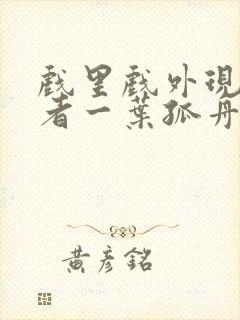 戲里戲外現
者一葉孤舟
黃彥銘